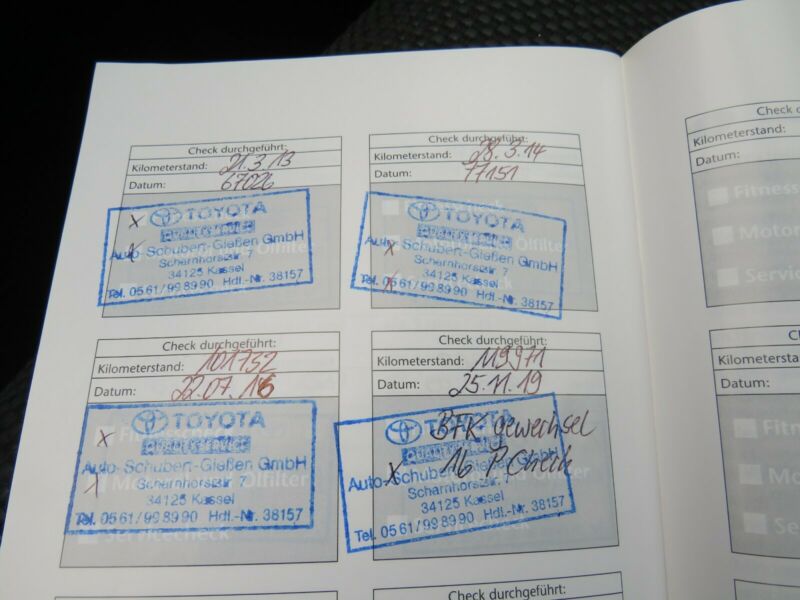 Check durchgeführt:
Kilometerstand: 21.3.13
Datum: 67026
TOYOTA
Auto-Schubert-Gießen GmbH
Scharnhorststr. 7
34125 Kassel
Tel. 05 61/99 89 90 Hdl.-Nr. 38157
Check durchgeführt:
Kilometerstand: 28.3.14
Datum: 77151
TOYOTA
Auto-Schubert-Gießen GmbH
Ölfilter
Scharnhorststr. 7
34125 Kassel
Tel. 05 61/99 89 90 Hdl.-Nr. 38157
Check durchgeführt:
Kilometerstand: 101732
Datum: 22.07.16
TOYOTA
Auto-Schubert-Gießen GmbH
Scharnhorststr. 7
34125 Kassel
Tel. 05 61/99 89 90 Hdl.-Nr. 38157
Servicecheck
Check durchgeführt:
Kilometerstand: 119971
Datum: 25.11.19
TOYOTA
BFK gewechsel
16 P. Check
Auto-Schubert-Gießen GmbH
Scharnhorststr. 7
34125 Kassel
Tel. 05 61/99 89 90 Hdl.-Nr. 38157
Check durchgeführt:
Check
Kilometerstand:
Datum:
Fitness
Motor
Servic
C
Kilometersta
Datum:
Fitn
Mot
Serv